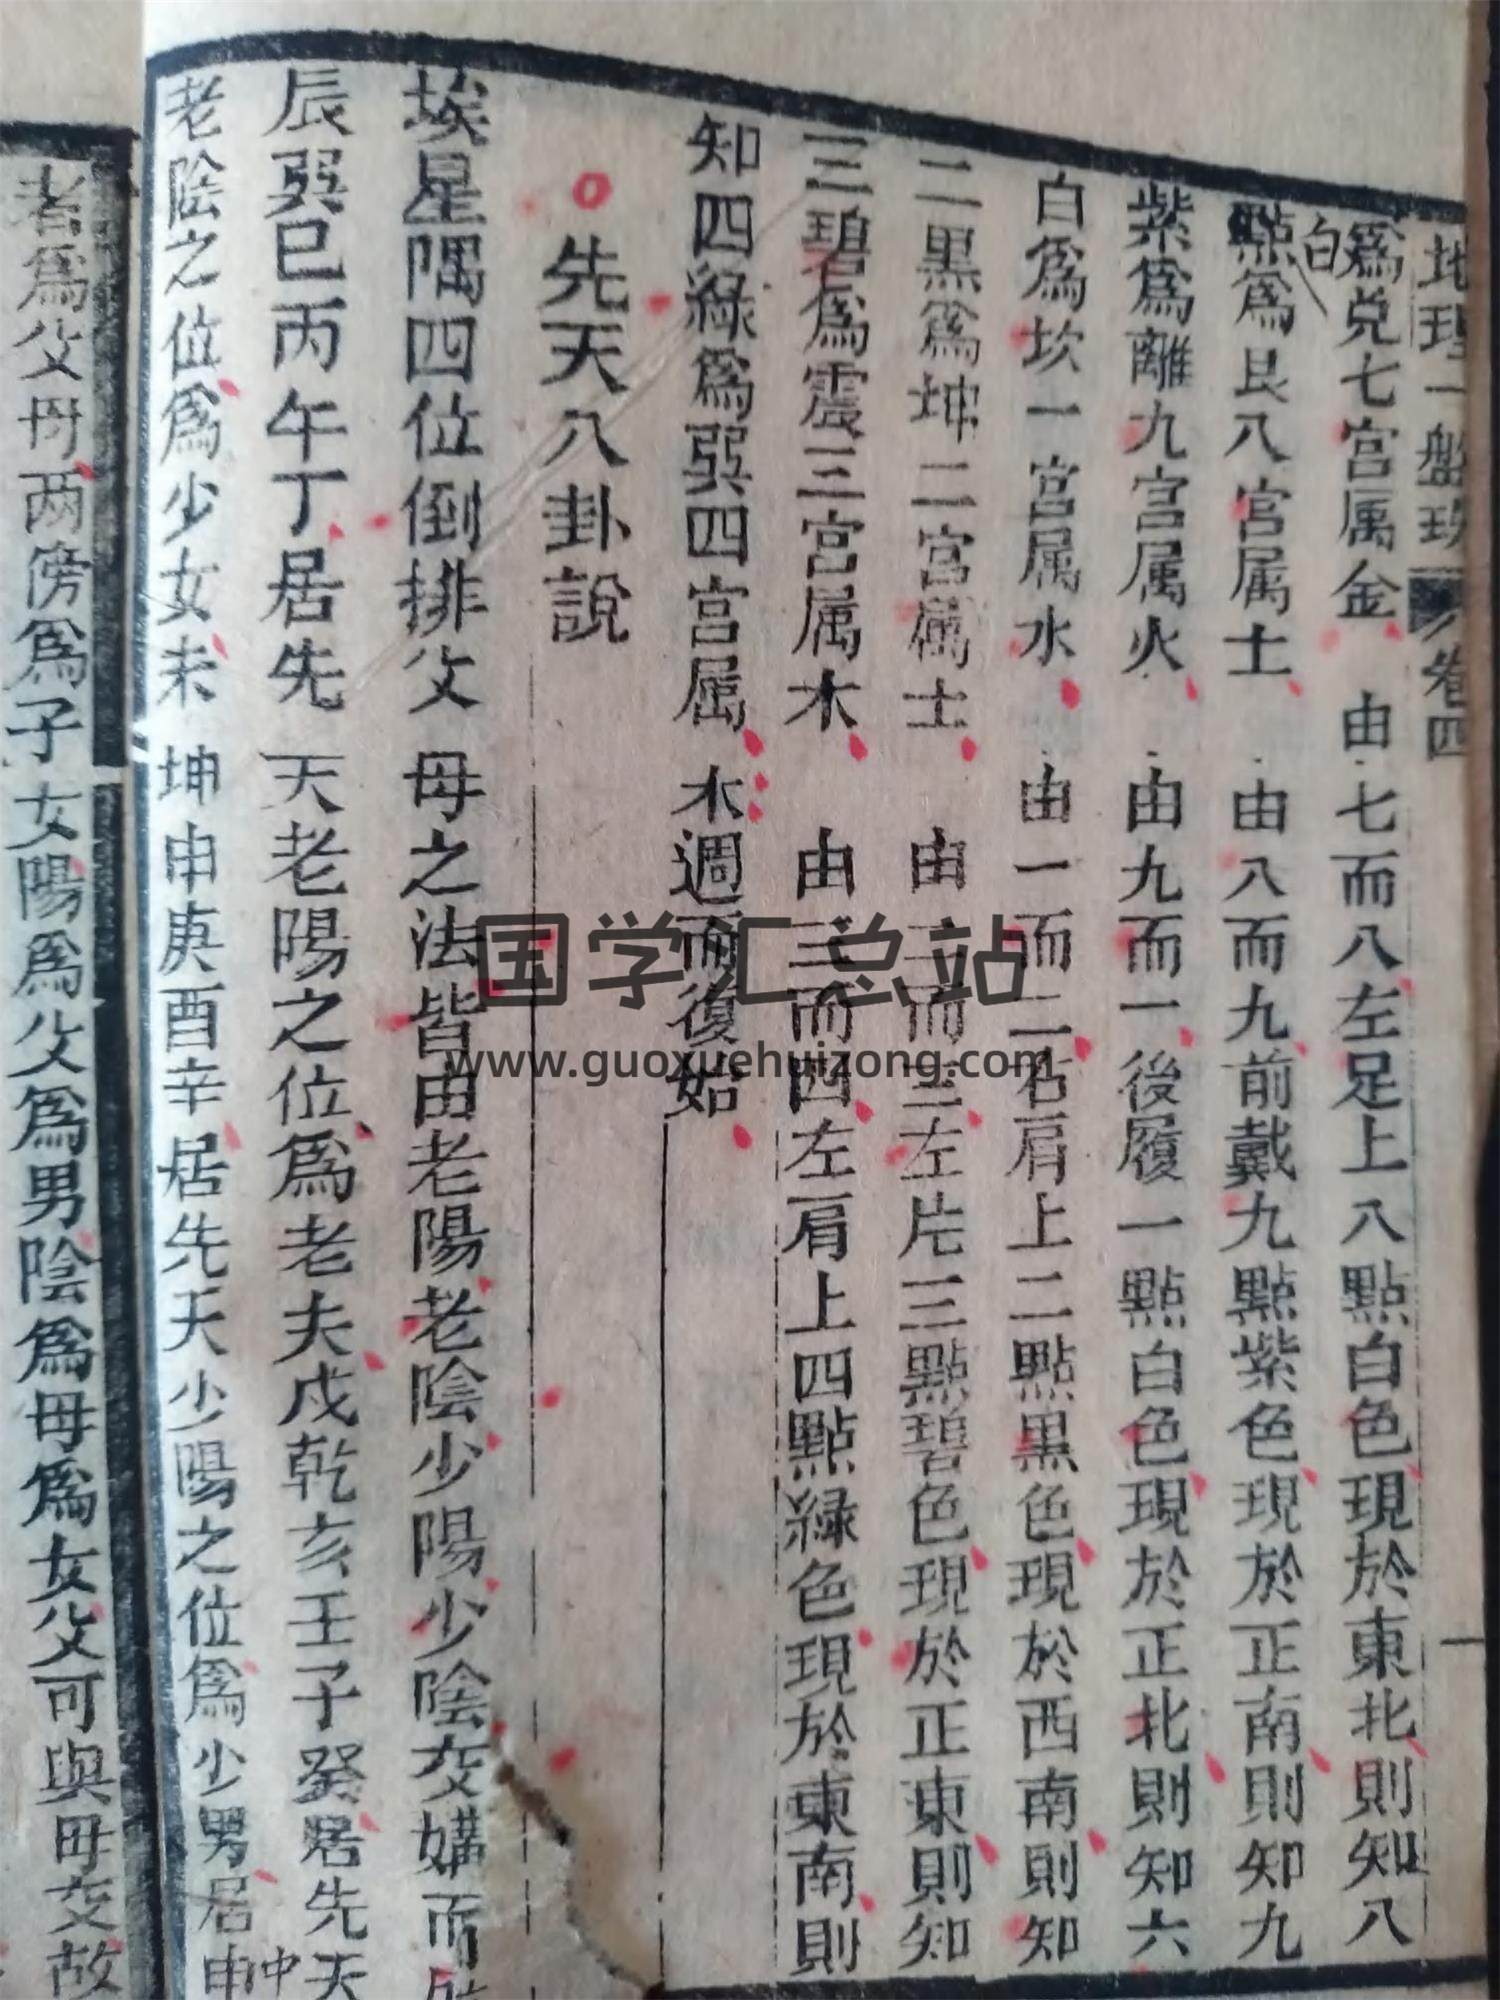 地理一盤珍 卷四 一
爲兌七宮属金 由七而八左足上八點白色現於東北則知八
白
點爲艮八宮属土 由八而九前戴九點紫色現於正南則知九
紫爲離九宮属火 由九而一後履一點白色現於正北則知六
白爲坎一宮属水 由一而二右肩上二點黑色現於西南則知
二黑爲坤二宮属土 由二而三左片三點碧色現於正東則知
三碧爲震三宮属木 由三而四左肩上四點緑色現於東南則
知四緑爲巽四宮属木週而復始
○先天八卦說
埃星隅四位倒排父母之法皆由老陽老陰少陽少陰交媾而
辰巽巳丙午丁居先天老陽之位爲老夫戌乾亥壬子癸居先天
中
老陰之位爲少女未坤申庚酉辛居先天少陽之位爲少男居申
者爲父母两傍爲子女陽爲父爲男陰爲母爲女父可與母交故
国学汇总站
www.guoxuehuizong.com